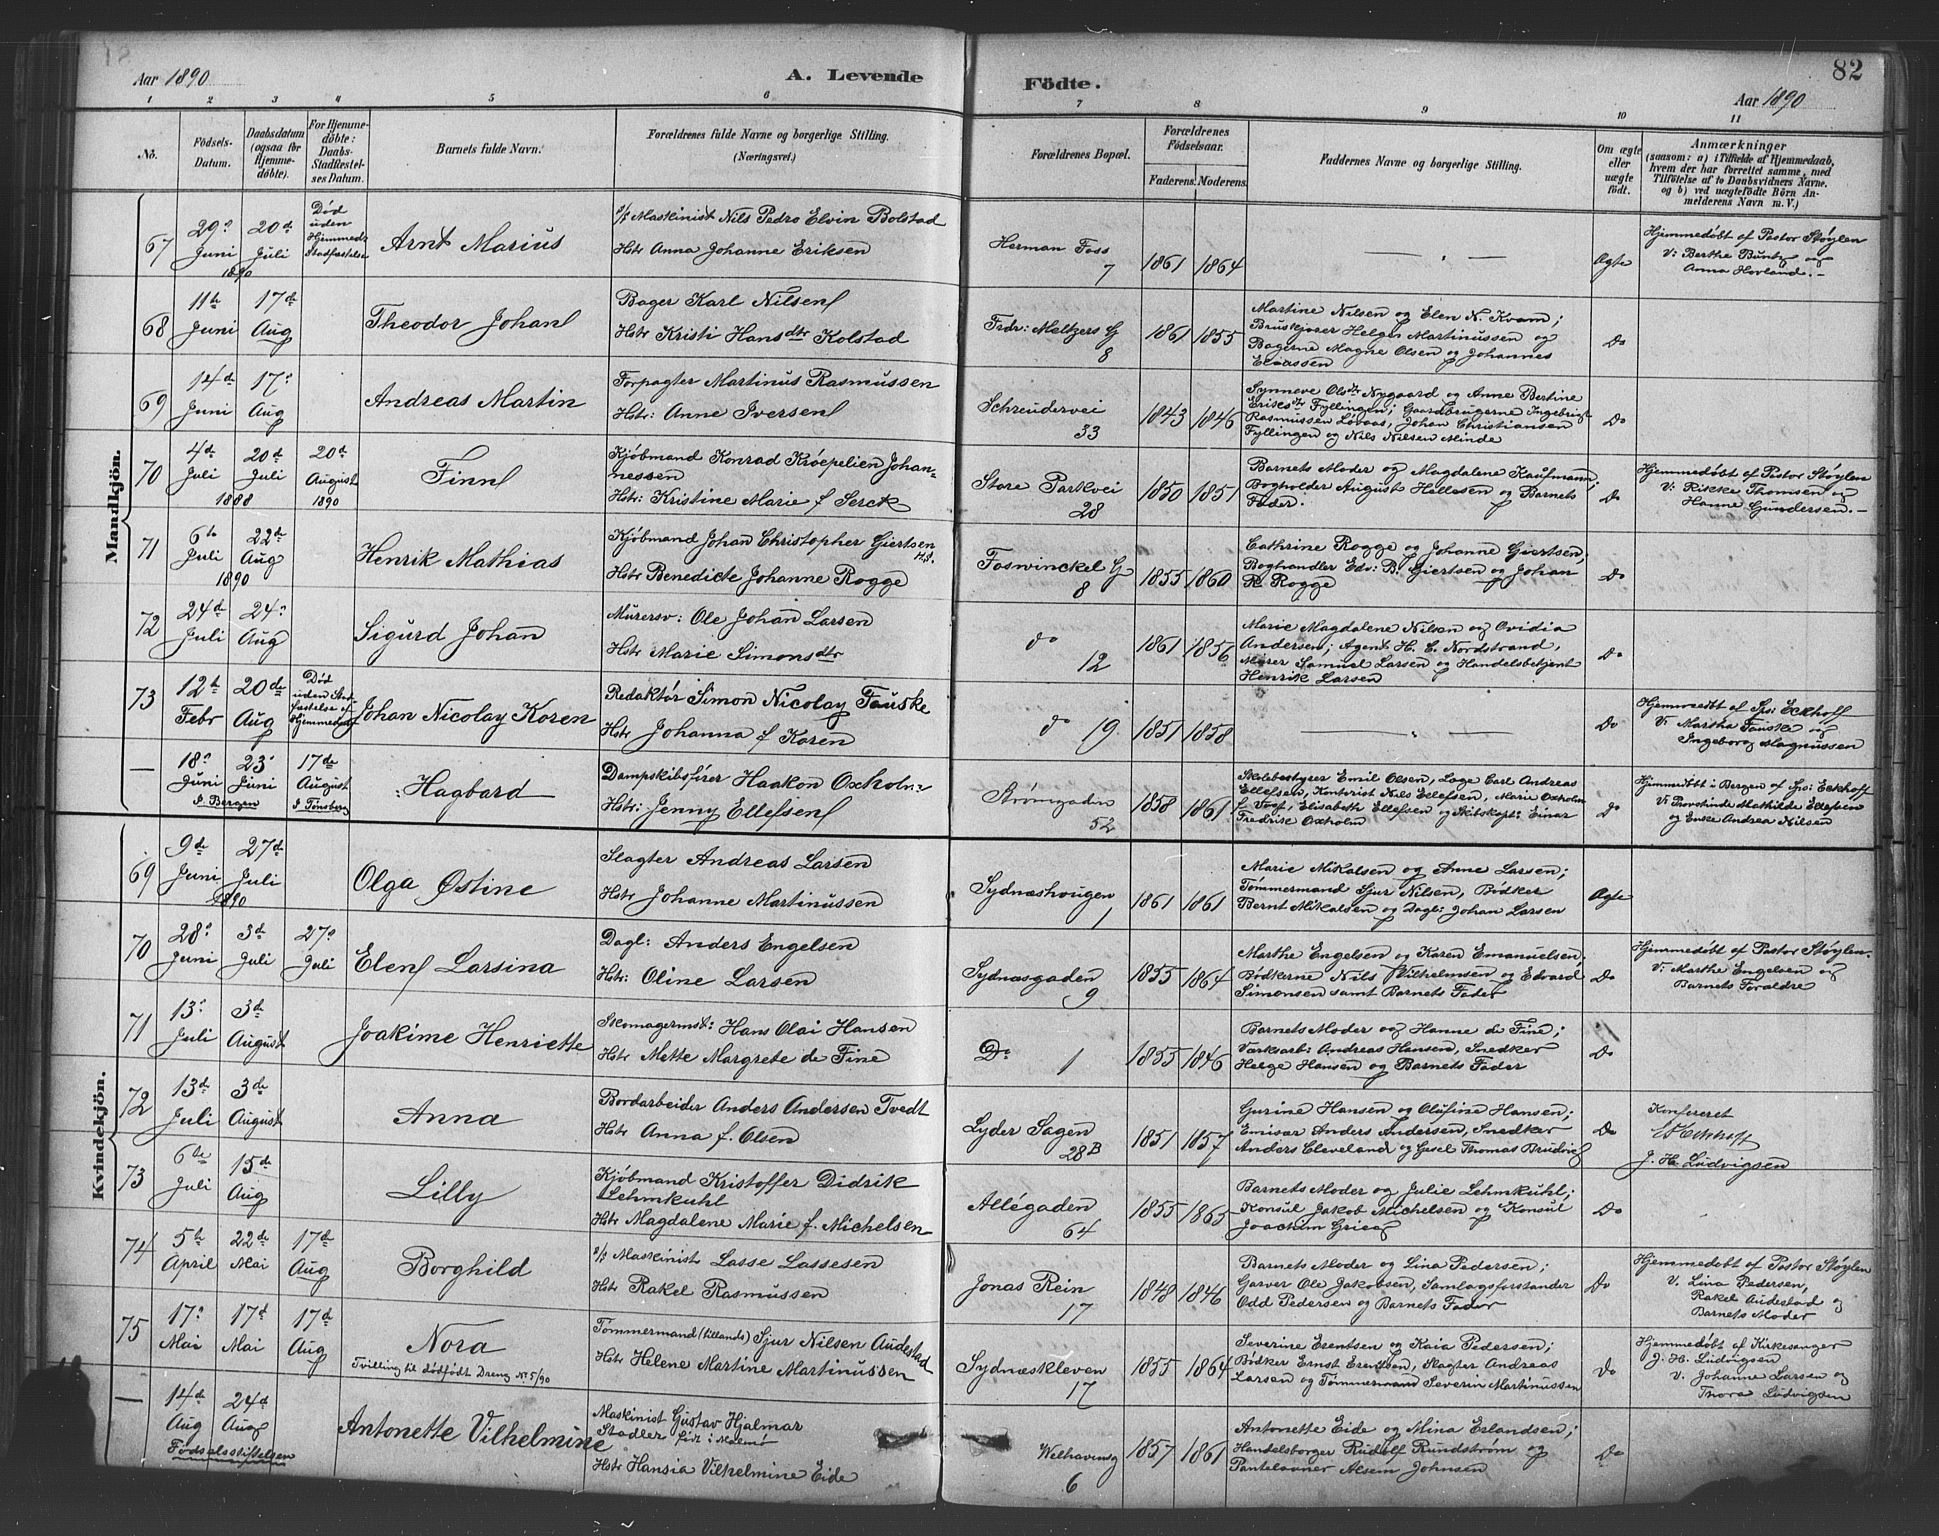 Aar 1890
A. Levende
Födte.
Aar 1890
82
1 2 3 4 5 6 7 8 9 10 11
No.
Födsels-Datum.
Daabsdatum (ogsaa for Hjemme-döbte).
For Hjemme-döbte: Daabs-Stadfæstel-ses Datum.
Barnets fulde Navn.
Forældrenes fulde Navne og borgerlige Stilling.
(Næringsvei.)
Forældrenes Bopæl.
Forældrenes Födselsaar.
Faderens. Moderens.
Faddernes Navne og borgerlige Stilling.
Om ægte eller uægte födt.
Anmærkninger
(saasom: a) i Tilfælde af Hjemmedaab,
hvem der har forrettet samme, med
Tilföielse af to Daabsvidners Navne.
og b) ved uægtefödte Börn An-
melderens Navn m. V.)
Mandkjön.
67
29de Juni 1890
20de Juli
Död uden Hjemmed: Stadfæstelse
Arnt Marius
s/s Maskinist Nils Pedro Elvin Bolstad
Hstr Anna Johanne Eriksen
Herman Foss 7
1861 1864
— " —
Ægte
Hjemmedöbt af Pastor Støylen
V: Berthe Buntz og
Anna Hovland.-
68
11te Juni
17de Aug
Theodor Johan
Bager Karl Nilsen
Hstr Kristi Hansdtr Kolstad
Frdr: Meltzers G 8
1861 1855
Martine Nilsen og Elen N. Kvam;
Bruskjører Helge Martinussen og
Bagerne Magne Olsen og Johannes
Eliassen
Do
69
14de Juni
17de Aug
Andreas Martin
Forpagter Martinus Rasmussen
Hstr: Anne Iversen
Schreudervei 33
1843 1846
Synneve Olsdtr Nygaard og Anne Bertine
Eriksdtr Fyllingen; Gaardbrugerne Ingebrigt
Rasmussen Løvaas, Johan Christiansen
Fyllingen og Nils Nilsen Minde
Do
70
4de Juli 1888
20de Juli
20de August 1890
Finn
Kjöbmand Konrad Krøepelien Johan-
nessen
Hstr: Kristine Marie f. Serck
Store Parkvei 28
1850 1851
Barnets Moder og Magdalene Kaufmann;
Bogholder August Hellesen og Barnets
Fader.
Do
Hjemmedöbt af Pastor Støylen
V: Rikke Thomsen og
Hanne Gundersen.-
71
6te Juli 1890
22de Aug
Henrik Mathias
Kjöbmand Johan Christopher Giertsen
Hstr Benedicte Johanne Rogge
Foswinckel G 8
1855 1860
Cathrine Rogge og Johanne Giertsen;
Boghandler Edv: B. Giertsen og Johan
R. Rogge
Do
72
24de Juli
24de Aug
Sigurd Johan
Murersv: Ole Johan Larsen
Hstr Marie Simonsdtr
do 12
1861 1856
Marie Magdalene Nilsen og Ovidia
Andersen; Agent H. E. Nordstrand,
Murer Samuel Larsen og Handelsbetjent
Henrik Larsen
Do
73
12te Febr
20de Aug
Död uden Stadfæstelse af Hjemmedaab
Johan Nicolay Koren
Redaktør Simon Nicolay Fauske
Hstr Johanna f Koren
do 19
1851 1858
— " —
Do
Hjemmedöbt af Sp: Eckhoff
V: Martha Fauske og
Ingeborg Magnussen
—
18de Juni I Bergen
23de Juni
17de August I Tønsberg
Hagbard
Dampskibsfører Haakon Oxholm
Hstr: Jenny Ellefsen
Strømgaden 52
1858 1861
Skolebestyrer Emil Olsen, Læge Carl Andreas
Ellefsen, Kontorist Nils Ellefsen, Marie Oxholm
f. Vogt, Elisabeth Ellefsen og Skibskapt: Einar
Fredrik Oxholm
Do
Hjemmedöbt i Bergen af Sp: Eckhoff
V: Provstinde Mathilde Ellefsen
og Enke Andrea Nilsen
Kvindekjön.
69
9de Juni 1890
27de Juli
Olga Østine
Slagter Andreas Larsen
Hstr Johanne Martinussen
Sydnæshougen 1
1861 1861
Marie Mikalsen og Anne Larsen;
Tømmermand Sjur Nilsen, Bødker
Bernt Mikalsen og Dagl: Johan Larsen
Ægte
70
28de Juni
3de Juli
27de Juli
Elen Larsina
Dagl: Anders Engelsen
Hstr: Oline Larsen
Sydnæsgaden 9
1855 1864
Marthe Engelsen og Karen Emanuelsen;
Bødkerne Nils Vilhelmsen og Edvard
Simonsen samt Barnets Fader
Do
Hjemmedöbt af Pastor Støylen.
V: Marthe Engelsen og
Barnets Forældre
71
13de Juli
3de August
Joakime Henriette
Skomagermst: Hans Olai Hansen
Hstr Mette Margrete de Fine
Do 1
1855 1846
Barnets Moder og Hanne de Fine;
Værksarb: Andreas Hansen, Snedker
Helge Hansen og Barnets Fader
Do
72
13de Juli
3de August
Anna
Bordarbeider Anders Andersen Tvedt
Hstr Anna f. Olsen
Lyder Sagen 28B
1851 1857
Gurine Hansen og Olufine Hansen;
Emisær Anders Andersen, Snedker
Anders Cleveland og Gesel Thomas Brudvig
Do
Konfereret
Eckhoff
J. H. Ludvigsen
73
6te Juli
15de Aug
Lilly
Kjöbmand Kristoffer Didrik
Lehmkuhl
Hstr Magdalene Marie f. Michelsen
Allégaden 64
1855 1865
Barnets Moder og Julie Lehmkuhl;
Konsul Jakob Michelsen og Konsul
Joachim Grieg
Do
74
5te April
22de Mai
17de Aug
Borghild
s/s Maskinist Lasse Lassesen
Hstr Rakel Rasmussen
Jonas Rein 17
1848 1846
Barnets Moder og Lina Pedersen;
Garver Ole Jakobsen, Samlagsforstander
Odd Pedersen og Barnets Fader
Do
Hjemmedöbt af Pastor Støylen
V. Lina Pedersen,
Rakel Audestad og
Barnets Moder
75
17de Mai
17de Mai
17de Aug
Nora
Tvilling til dødfødt Dreng No 5/90
Tømmermand (tillands) Sjur Nilsen Audestad
Hstr Helene Martine Martinussen
Sydnæskleven 17
1855 1864
Severine Erentsen og Kaia Pedersen;
Bødker Ernst Erentsen, Slagter Andreas
Larsen og Tømmermand Severin Martinussen
Do
Hjemmedöbt af Kirkesanger
J. H. Ludvigsen
V. Johanne Larsen og
Thora Ludvigsen
—
14de Aug
24de Aug
Födselsstiftelsen
Antonette Vilhelmine
Maskinist Gustav Hjalmar
Stadler födt i Malmø
Hstr Hansia Vilhelmine Eide
Welhavensg 6
1857 1861
Antonette Eide og Mina Erlandsen;
Handelsborger Rudolf Rundstrøm og
Pantelaaner Alsem Johnsen
Do